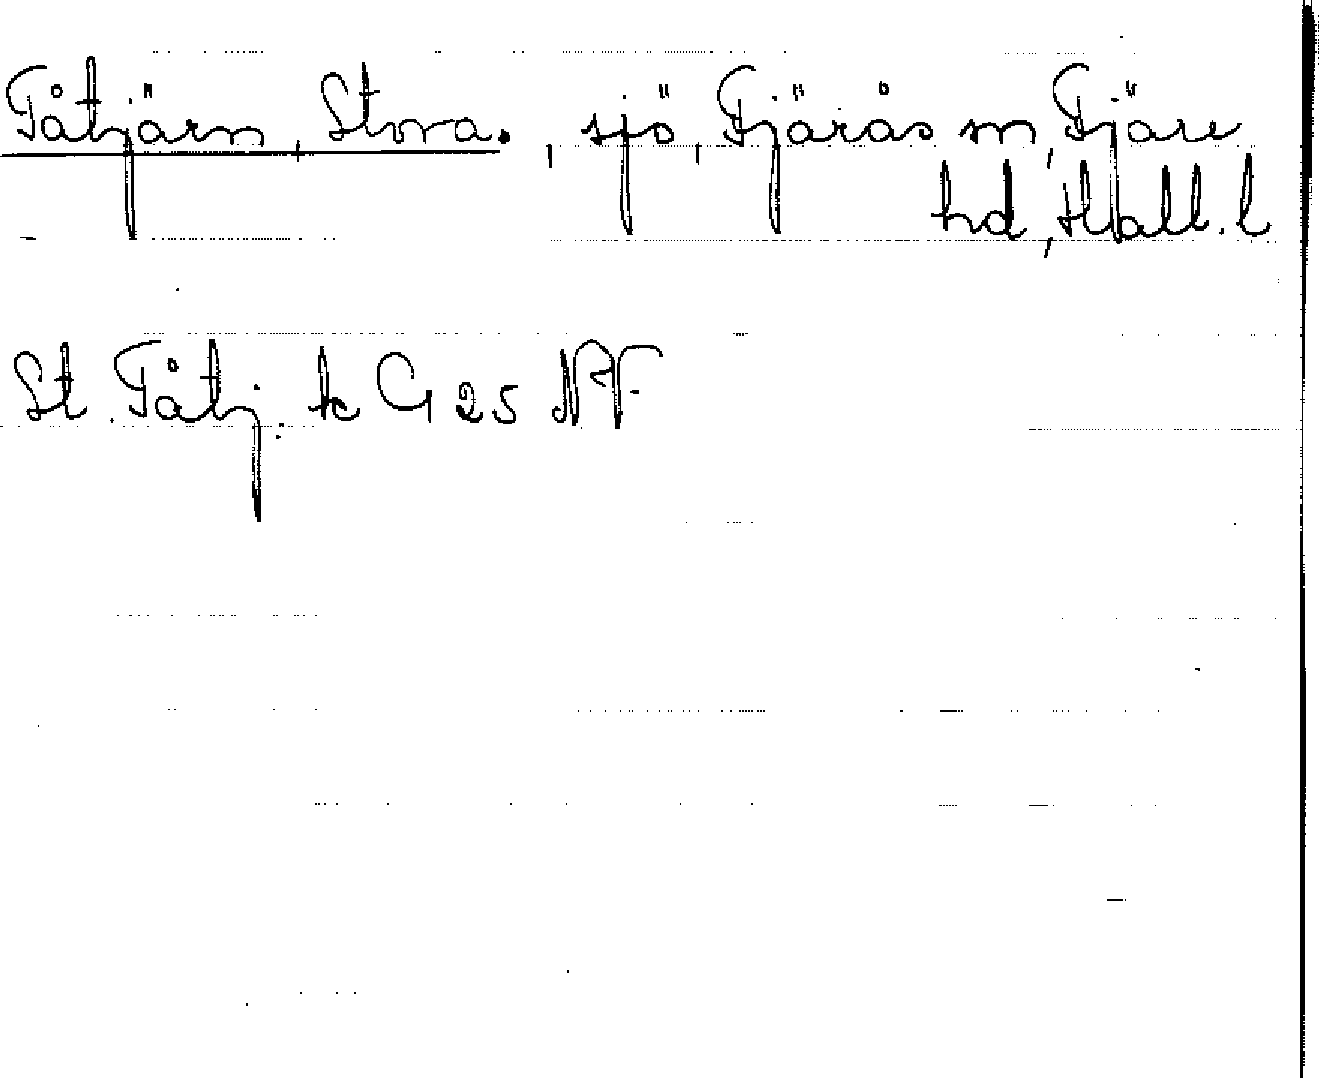 Tåtjärn, Stora. , sjö, Fjärås sn, Fjäre
hd, Hall. l
St. Tåtj. k G 25 NF